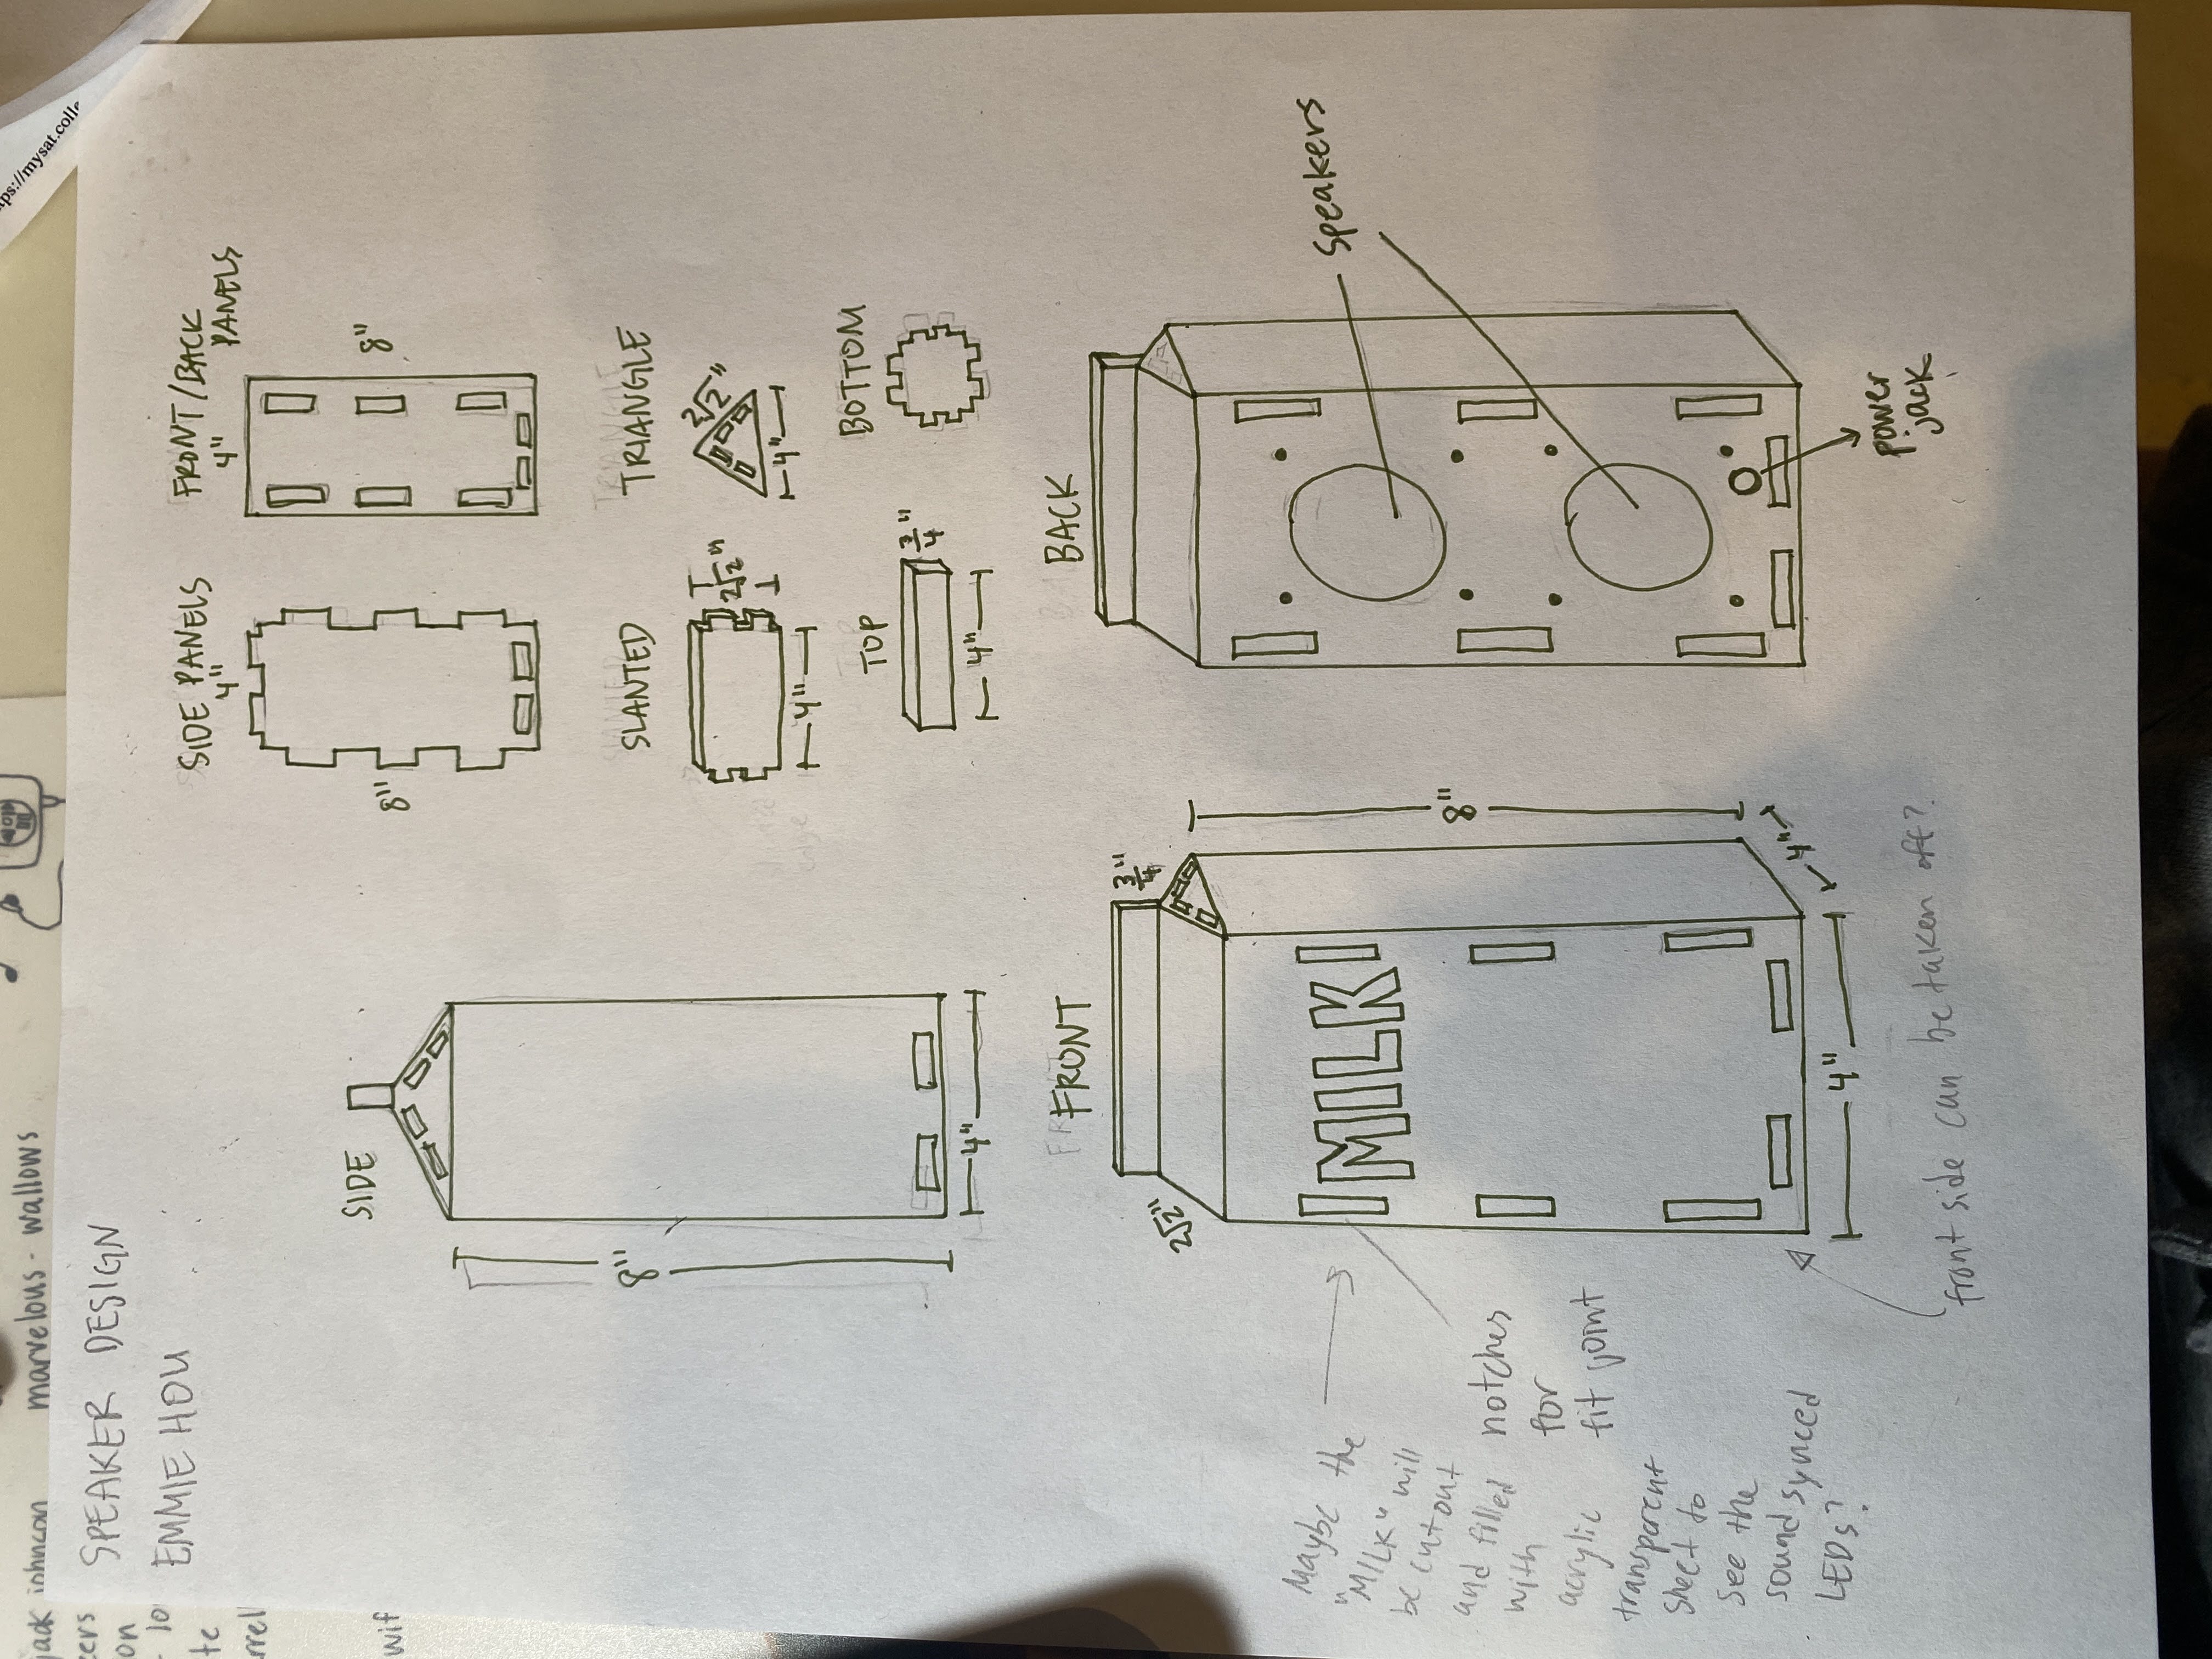 jack johnson
marvelous - wallows
eers
on
te
rrel
wif
ps://mysat.colle
SPEAKER DESIGN
EMMIE HOU
SIDE PANELS
4"
8"
FRONT/BACK
PANELS
4"
8"
SIDE
8"
4"
SLANTED
2√2"
4"
TRIANGLE
2√2"
4"
TOP
3/4"
4"
BOTTOM
FRONT
3/4"
2√2"
MILK
8"
4"
4"
Maybe the
"MILK" will
be cutout
and filled
with
acrylic
transparent
sheet to
see the
sound synced
LEDs?
notches
for
fit joint
front side can be taken off?
BACK
Speakers
power
jack